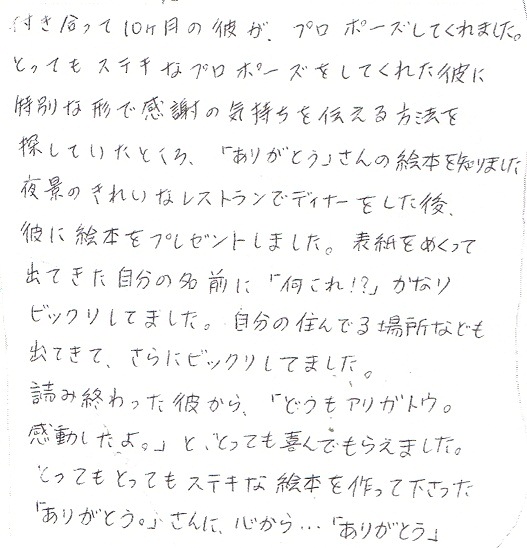 付き合って10ヶ月の彼が、プロポーズしてくれました。
とってもステキなプロポーズをしてくれた彼に
特別な形で感謝の気持ちを伝える方法を
探していたところ、「ありがとう」さんの絵本を知りました
夜景のきれいなレストランでディナーをした後、
彼に絵本をプレゼントしました。表紙をめくって
出てきた自分の名前に「何これ!?」かなり
ビックリしてました。自分の住んでる場所なども
出てきて、さらにビックリしてました。
読み終わった彼から、「どうもアリガトウ。
感動したよ。」と、とっても喜んでもらえました。
とってもとってもステキな絵本を作って下さった
「ありがとう。」さんに、心から…「ありがとう」